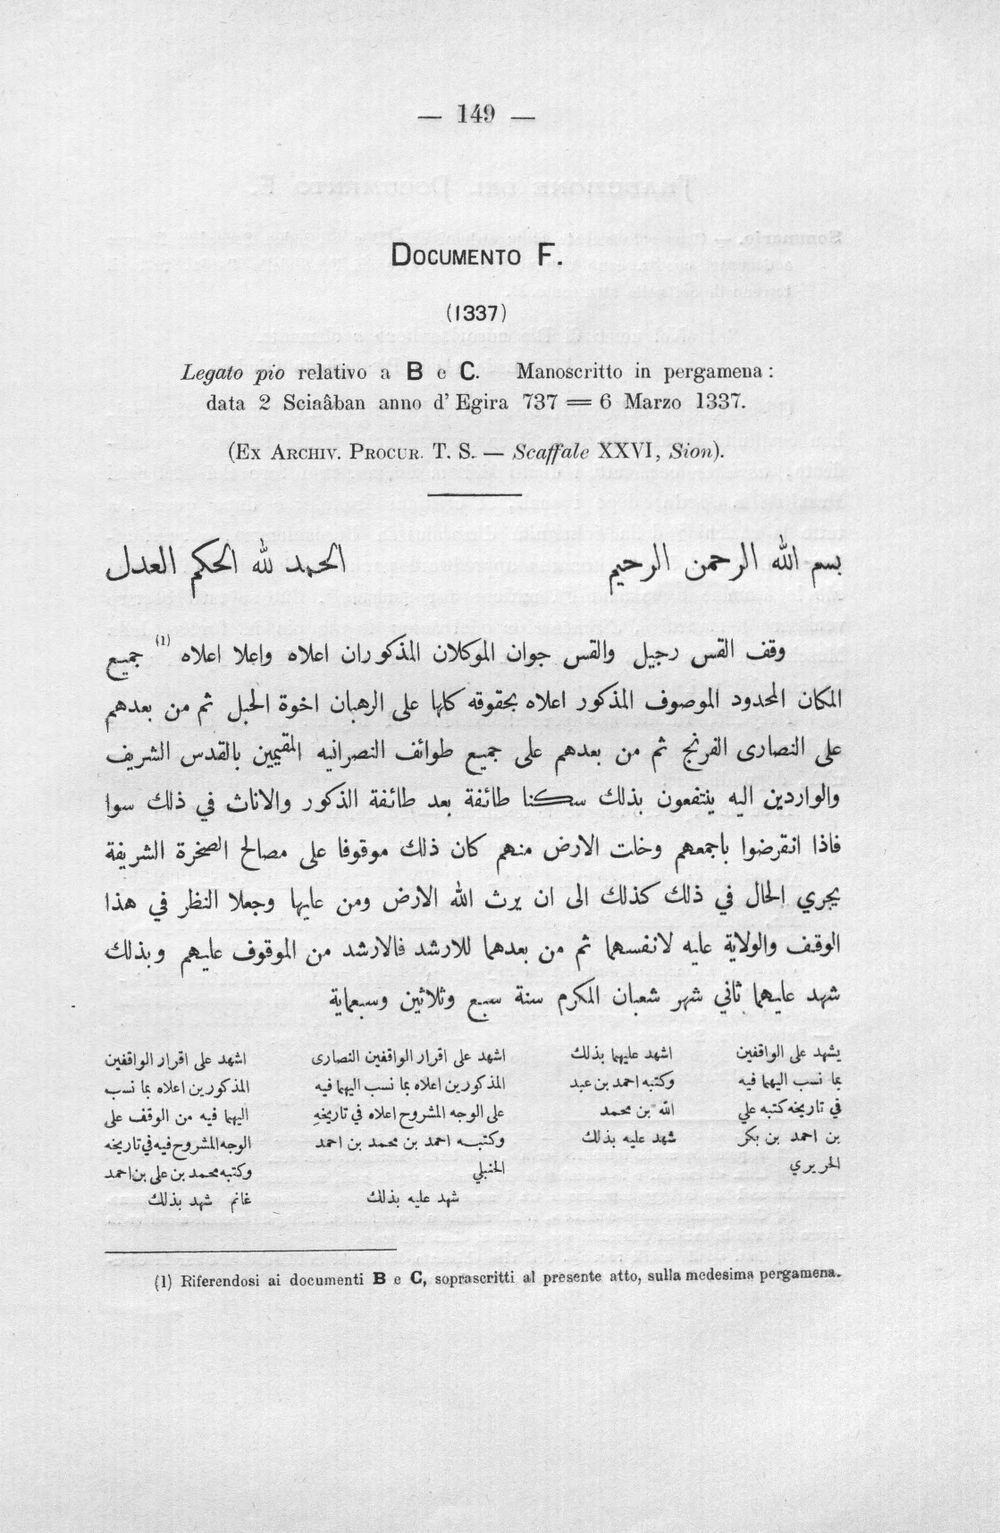 — 149 —
DOCUMENTO F.
(1337)
Legato pio relativo a B e C. Manoscritto in pergamena:
data 2 Sciaâban anno d' Egira 737 = 6 Marzo 1337.
(EX ARCHIV. PROCUR. T. S. — Scaffale XXVI, Sion).
بسم الله الرحمن الرحيم الحمد لله الحكم العدل
وقف القس رجيل والقس جوان الموكلان المذكوران اعلاه واعلا اعلاه (1) جميع
المكان المحدود الموصوف المذكور اعلاه بحقوقه كلها على الرهبان اخوة الحبل ثم من بعدهم
على النصارى الفرنج ثم من بعدهم على جميع طوائف النصرانيه المقيمين بالقدس الشريف
والواردين اليه ينتفعون بذلك سكنا طائفة بعد طائفة الذكور والاناث في ذلك سوا
فاذا انقرضوا باجمعهم وخلت الارض منهم كان ذلك موقوفا على مصالح الصخرة الشريفة
يجري الحال في ذلك كذلك الى ان يرث الله الارض ومن عليها وجعلا النظر في هذا
الوقف والولاية عليه لانفسهما ثم من بعدهما للارشد فالارشد من الموقوف عليهم وبذلك
شهد عليهما ثاني شهر شعبان المكرم سنة سبع وثلاثين وسبعماية
يشهد على الواقفين
بما نسب اليهما فيه
في تاريخه كتبه علي
بن احمد بن بكر
الحريري
اشهد عليهما بذلك
وكتبه احمد بن عبد
الله بن محمد
شهد عليه بذلك
اشهد على اقرار الواقفين النصارى
المذكورين اعلاه بما نسب اليهما فيه
على الوجه المشروح اعلاه في تاريخه
وكتبه احمد بن محمد بن احمد
الحنبلي
شهد عليه بذلك
اشهد على اقرار الواقفين
المذكورين اعلاه بما نسب
اليهما فيه من الوقف على
الوجه المشروح فيه في تاريخه
وكتبه محمد بن على بن احمد
غانم شهد بذلك
(1) Riferendosi ai documenti B e C, soprascritti al presente atto, sulla medesima pergamena.